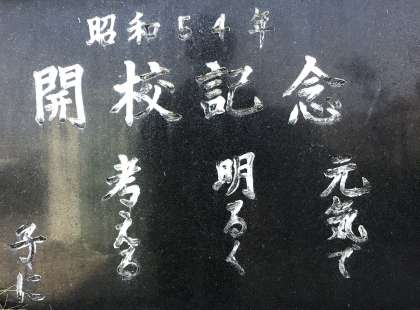 昭和54年
開校記念
元気て
明るく
考える
子に